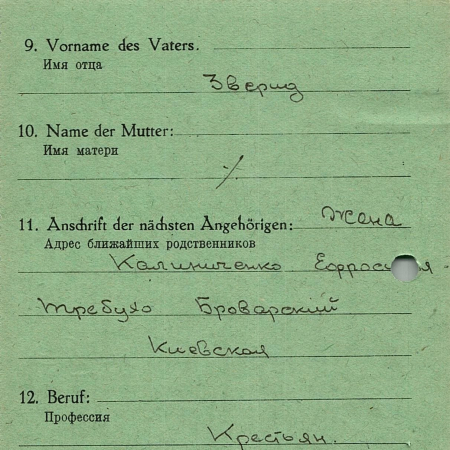 9. Vorname des Vaters.
Имя отца
Зверид
10. Name der Mutter:
Имя матери
11. Anschrift der nächsten Angehörigen: Жена
Адрес ближайших родственников
Калиниченко
Требухо Броварский
Киевская
12. Beruf:
Профессия
Крестьян.